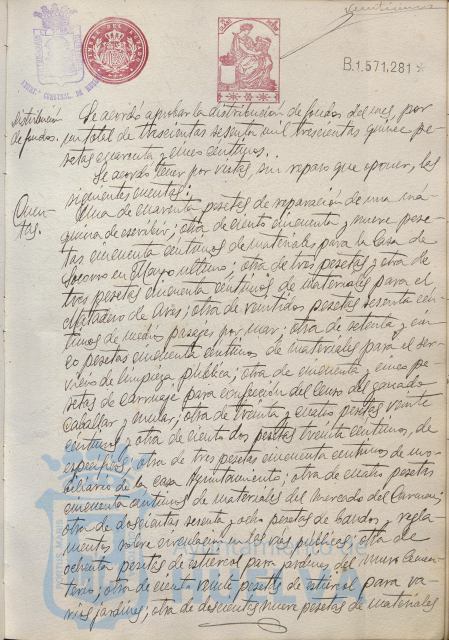 B.1.571.281*
Distribución
de fondos.
Se acordó aprobar la distribución de fondos del mes, por
un total de trescientas sesenta mil trescientas quince pe-
setas cuarenta y cinco céntimos.
Se acordó tener por vistas, sin reparo que oponer, las
siguientes cuentas:
Cuen-
tas.
Una de cuarenta pesetas de reparación de una má-
quina de escribir; otra de ciento cincuenta y nueve pese-
tas cincuenta céntimos de materiales para la Casa de
Socorro en Mayo último; otra de tres pesetas y otra de
tres pesetas cincuenta céntimos de materiales para el
Matadero de Aves; otra de veintidos pesetas sesenta cén-
timos de medios pasajes por mar; otra de setenta y cin-
co pesetas cincuenta céntimos de materiales para el ser-
vicio de limpieza pública; otra de cincuenta y cinco pe-
setas de carruaje para confección del Censo del ganado
caballar y mular; otra de treinta y cuatro pesetas veinte
céntimos y otra de ciento dos pesetas treinta céntimos, de
específicos; otra de tres pesetas cincuenta céntimos de mo-
biliario de la Casa Ayuntamiento; otra de cuatro pesetas
cincuenta céntimos de materiales del Mercado del Carmen;
otra de doscientas sesenta y ocho pesetas de bandos y regla
mentos sobre circulación en las vías públicas; otra de
ochenta pesetas de estiercol para jardines del nuevo Cemen-
terio; otra de ciento veinte pesetas de estiercol para va-
rios jardines; otra de doscientas nueve pesetas de materiales
Ayuntamiento de